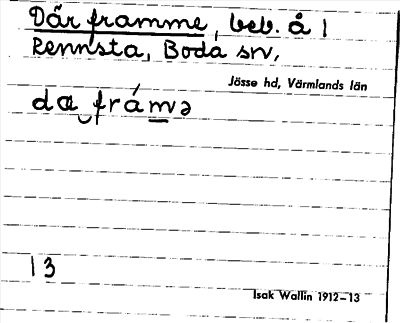 Där framme, beb. å 1
Rennsta, Boda sn,
Jösse hd, Värmlands län
da fráma
13
Isak Wallin 1912–13